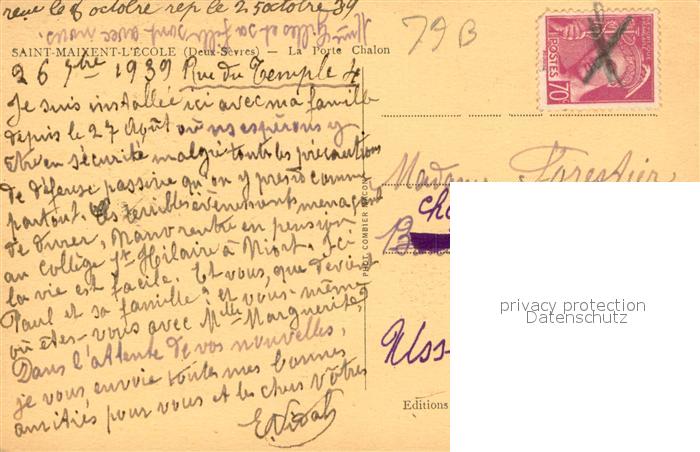 reçue le 8 octobre rep le 25 octobre 39
et sa fille sont avec nous.
SAINT-MAIXENT-L'ÉCOLE (Deux-Sèvres) — La Porte Chalon
79 B
26 7bre 1939 Rue du Temple 4
Je suis installée ici avec ma famille
depuis le 27 Août où ns espérons y
être en sécurité malgré toutes les précautions
de défense passive qu'on y prend comme
partout. Les terribles événements menaçant
de durer, Mano rentre en pension
au collège St Hilaire à Niort. Ici
la vie est facile. Et vous, que devient
Paul et sa famille? et vous-même
où êtes-vous avec Mlle Marguerite?
Dans l'attente de vos nouvelles,
je vous envoie toutes mes bonnes
amitiés pour vous et les chers vôtres
E. Vidal
PHOT. COMBIER MACON
POSTES
70c
Madame Forestier
Ch
B
Uss-
Editions
privacy protection
Datenschutz